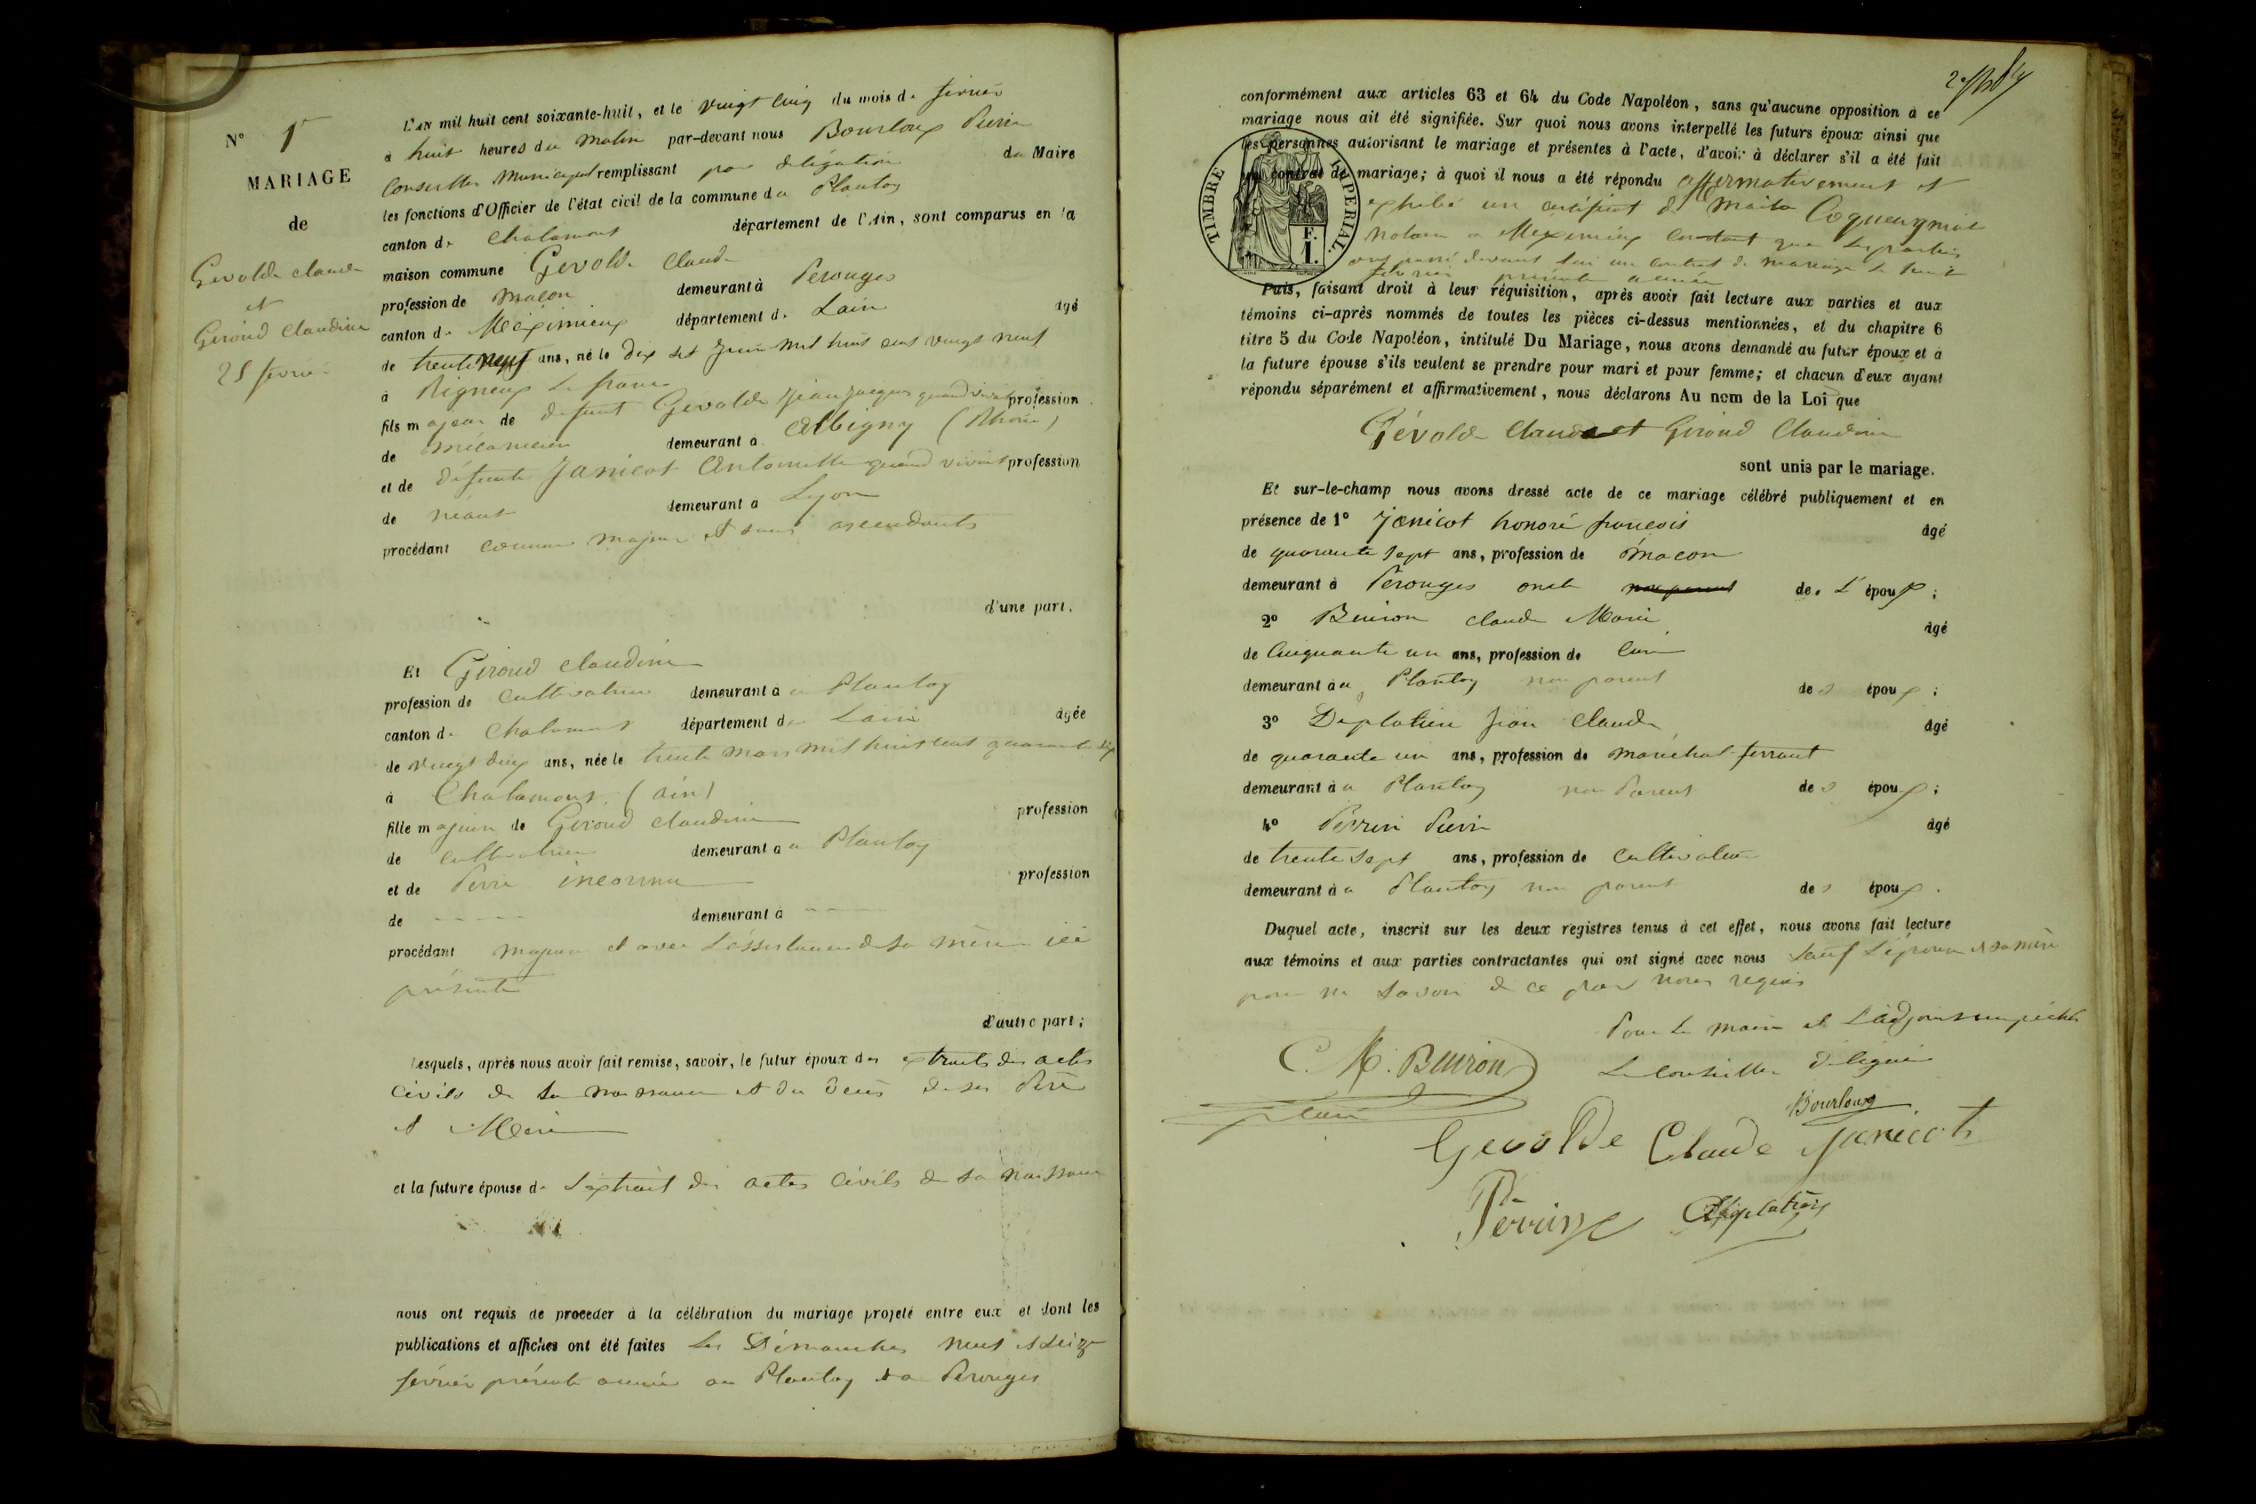 N° 1er
MARIAGE
de
Gevolde claude
et
Giroud Claudine
25 février
L'AN mil huit cent soixante-huit, et le vingt cinq du mois de février
à huit heures du matin par-devant nous Bourloux Pierre
Conseiller Municipal remplissant par délégation du Maire
les fonctions d'Officier de l'état civil de la commune du Plantay
canton de Chalamont département de l'Ain, sont comparus en la
maison commune Gevolde Claude
profession de maçon demeurant à Perouges
canton de Méximieux département de Lain âgé
de trente neuf ans, né le dix juin mil huit cent vingt neuf
à Rigneux le franc
fils majeur de défunt Gevolde Jean Jacques quand vivait profession
de mécanicien demeurant à Albigny (Rhone)
et de défunte Janicot Antoinette quand vivait profession
de néant demeurant à Lyon
procédant comme majeur et sans ascendants
d'une part.
Et Giroud claudine
profession de cultivatrice demeurant à au Plantay
canton de Chalamont département de Lain âgée
de vingt deux ans, née le trente mars mil huit cent quarante six
à Chalamont (ain)
fille majeure de Giroud claudine profession
de cultivatrice demeurant à au Plantay
et de Père inconnu profession
de ---- demeurant à ---
procédant majeure et avec L'assistance de sa mère ici
présente
d'autre part;
Lesquels, après nous avoir fait remise, savoir, le futur époux des extraits des actes
civils de sa naissance et du décès de ses Père
et Mère
et la future épouse de l'extrait des actes civils de sa naissance
nous ont requis de procéder à la célébration du mariage projeté entre eux et dont les
publications et affiches ont été faites les Dimanches neuf et seize
février présente année au Plantay et a Perouges
conformément aux articles 63 et 64 du Code Napoléon, sans qu'aucune opposition à ce
mariage nous ait été signifiée. Sur quoi nous avons interpellé les futurs époux ainsi que
les personnes autorisant le mariage et présentes à l'acte, d'avoir à déclarer s'il a été fait
un contrat de mariage; à quoi il nous a été répondu affirmativement et
exhibé un certificat de Maitre Coqueugniot
Notaire a Meximieux constant que les parties
ont passé devant lui un contrat de mariage le
février présente année
TIMBRE IMPERIAL
F.
1.
Puis, faisant droit à leur réquisition, après avoir fait lecture aux parties et aux
témoins ci-après nommés de toutes les pièces ci-dessus mentionnées, et du chapitre 6
titre 5 du Code Napoléon, intitulé Du Mariage, nous avons demandé au futur époux et à
la future épouse s'ils veulent se prendre pour mari et pour femme; et chacun d'eux ayant
répondu séparément et affirmativement, nous déclarons Au nom de la Loi que
Gévolde Claude et Giroud Claudine
sont unis par le mariage.
Et sur-le-champ nous avons dressé acte de ce mariage célébré publiquement et en
présence de 1° Janicot honoré françois âgé
de quarante sept ans, profession de maçon
demeurant à Perouges oncle non parent de L'époux;
2° Buiron claude Marie âgé
de Cinquante un ans, profession de Curé
demeurant à au Plantay non parent des époux;
3° Deplatière Jean Claude âgé
de quarante un ans, profession de maréchal-ferrant
demeurant à au Plantay non Parent des époux;
4° Pérrin Pierre âgé
de trente sept ans, profession de cultivateur
demeurant à au Plantay non parent des époux.
Duquel acte, inscrit sur les deux registres tenus à cet effet, nous avons fait lecture
aux témoins et aux parties contractantes qui ont signé avec nous sauf L'épouse et sa mère
pour ne savoir de ce par nous requis
Pour le maire et L'adjoint empéchés
Le Conseiller Délégué
Bourloux
C. M. Buiron
curé
Gevolde Claude Janicot
Pérrin Deplatière